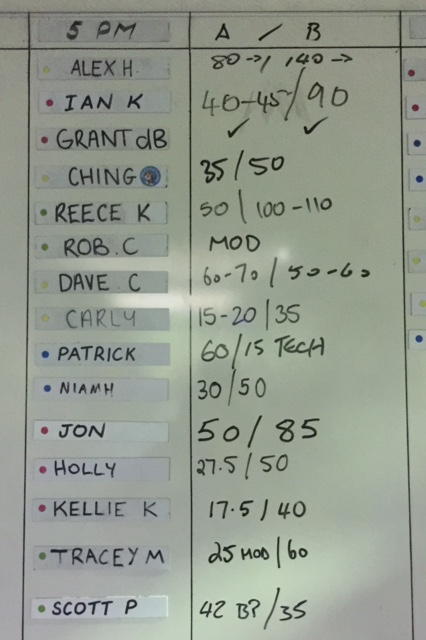 5 PM A / B
ALEX H. 80→ / 140→
IAN K 40-45/90
GRANT dB ✓ ✓
CHING 35/50
REECE K 50 / 100-110
ROB.C MOD
DAVE C 60-70 / 50-60
CARLY 15-20 / 35
PATRICK 60/15 TECH
NIAMH 30/50
JON 50/85
HOLLY 27.5/50
KELLIE K 17.5/40
TRACEY M 25 MOD/60
SCOTT P 42 BP/35